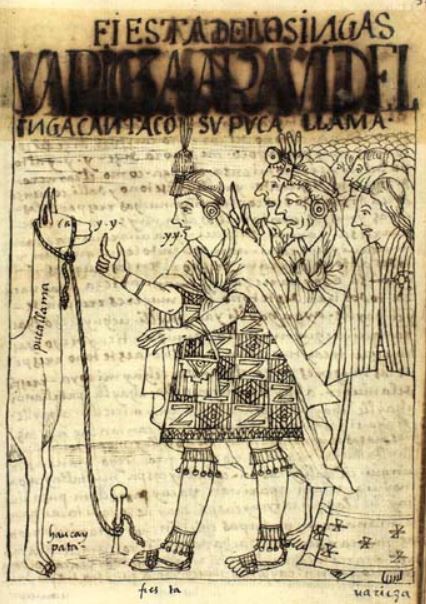 FIESTA DE LOS INGAS
VARICZA ARAVI DEL
INGA CANTA CO SV PVCA LLAMA
y.y
y.y
puca llama
haucay
pata
fiesta
uaricza